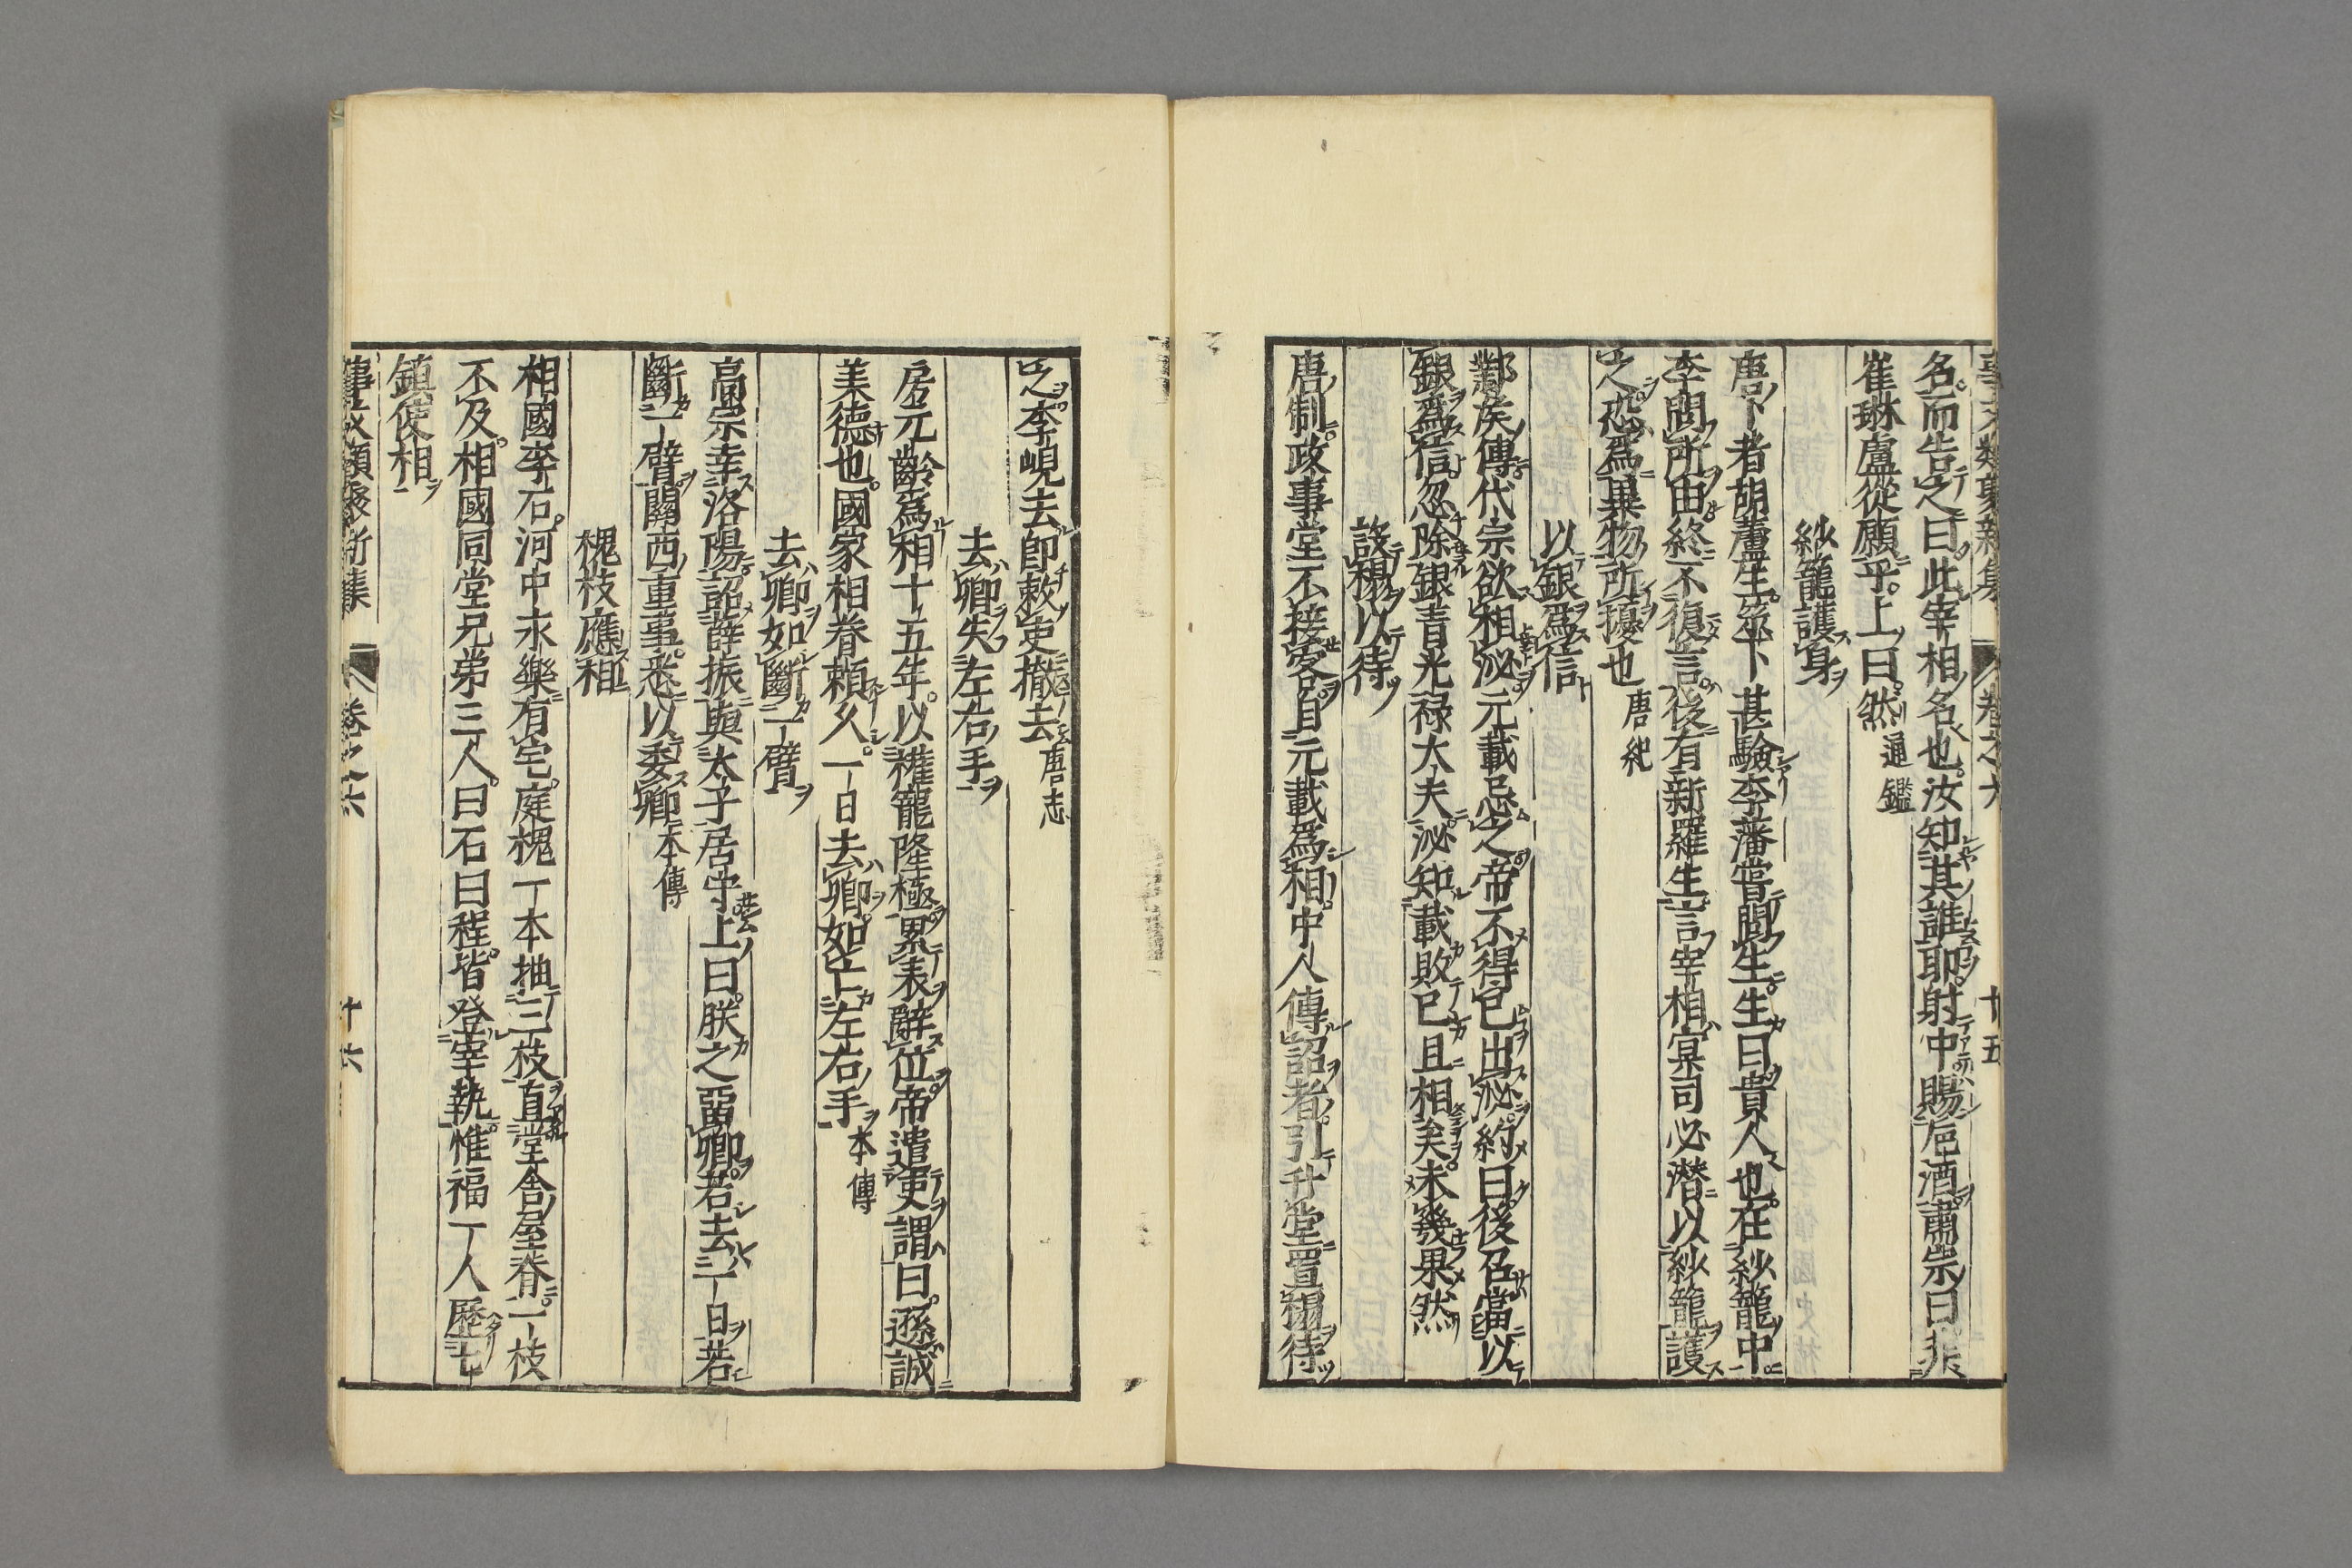 事文類聚新集 卷之六 十五
名而告之曰此宰相名也汝知其誰耶射中賜巵酒肅崇曰非
崔琳盧從願乎上曰然通鑑
紗籠護身
唐卜者胡蘆生筮卜甚驗李藩嘗問生生曰貴人也在紗籠中
李問所由終不復言後有新羅生言宰相冥司必潛以紗籠護
之恐爲異物所擾也唐紀
以銀爲信
鄴侯傳代宗欲相泌元載忌之帝不得已出泌約曰後召當以
銀爲信忽除銀青光禄太夫泌知載敗已且相矣未幾果然
設榻以待
唐制政事堂不接客自元載爲相中人傳詔者引升堂置榻待
之李峴去卽敕吏撤去唐志
去卿失左右手
房元齡爲相十五年以權寵隆極累表辭位帝遣吏謂曰遜誠
美德也國家相眷頼久一日去卿如亡左右手本傳
去卿如斷一臂
高宗幸洛陽詔薛振與太子居守上曰朕之畱卿若去一日若
斷一臂關西重事悉以委卿本傳
槐枝應相
相國李石河中永樂有宅庭槐一本抽三枝直堂舎屋脊一枝
不及相國同堂兄弟三人曰石曰程皆登宰執惟福一人歷七
鎮使相
事文類聚新集 卷之六 十六